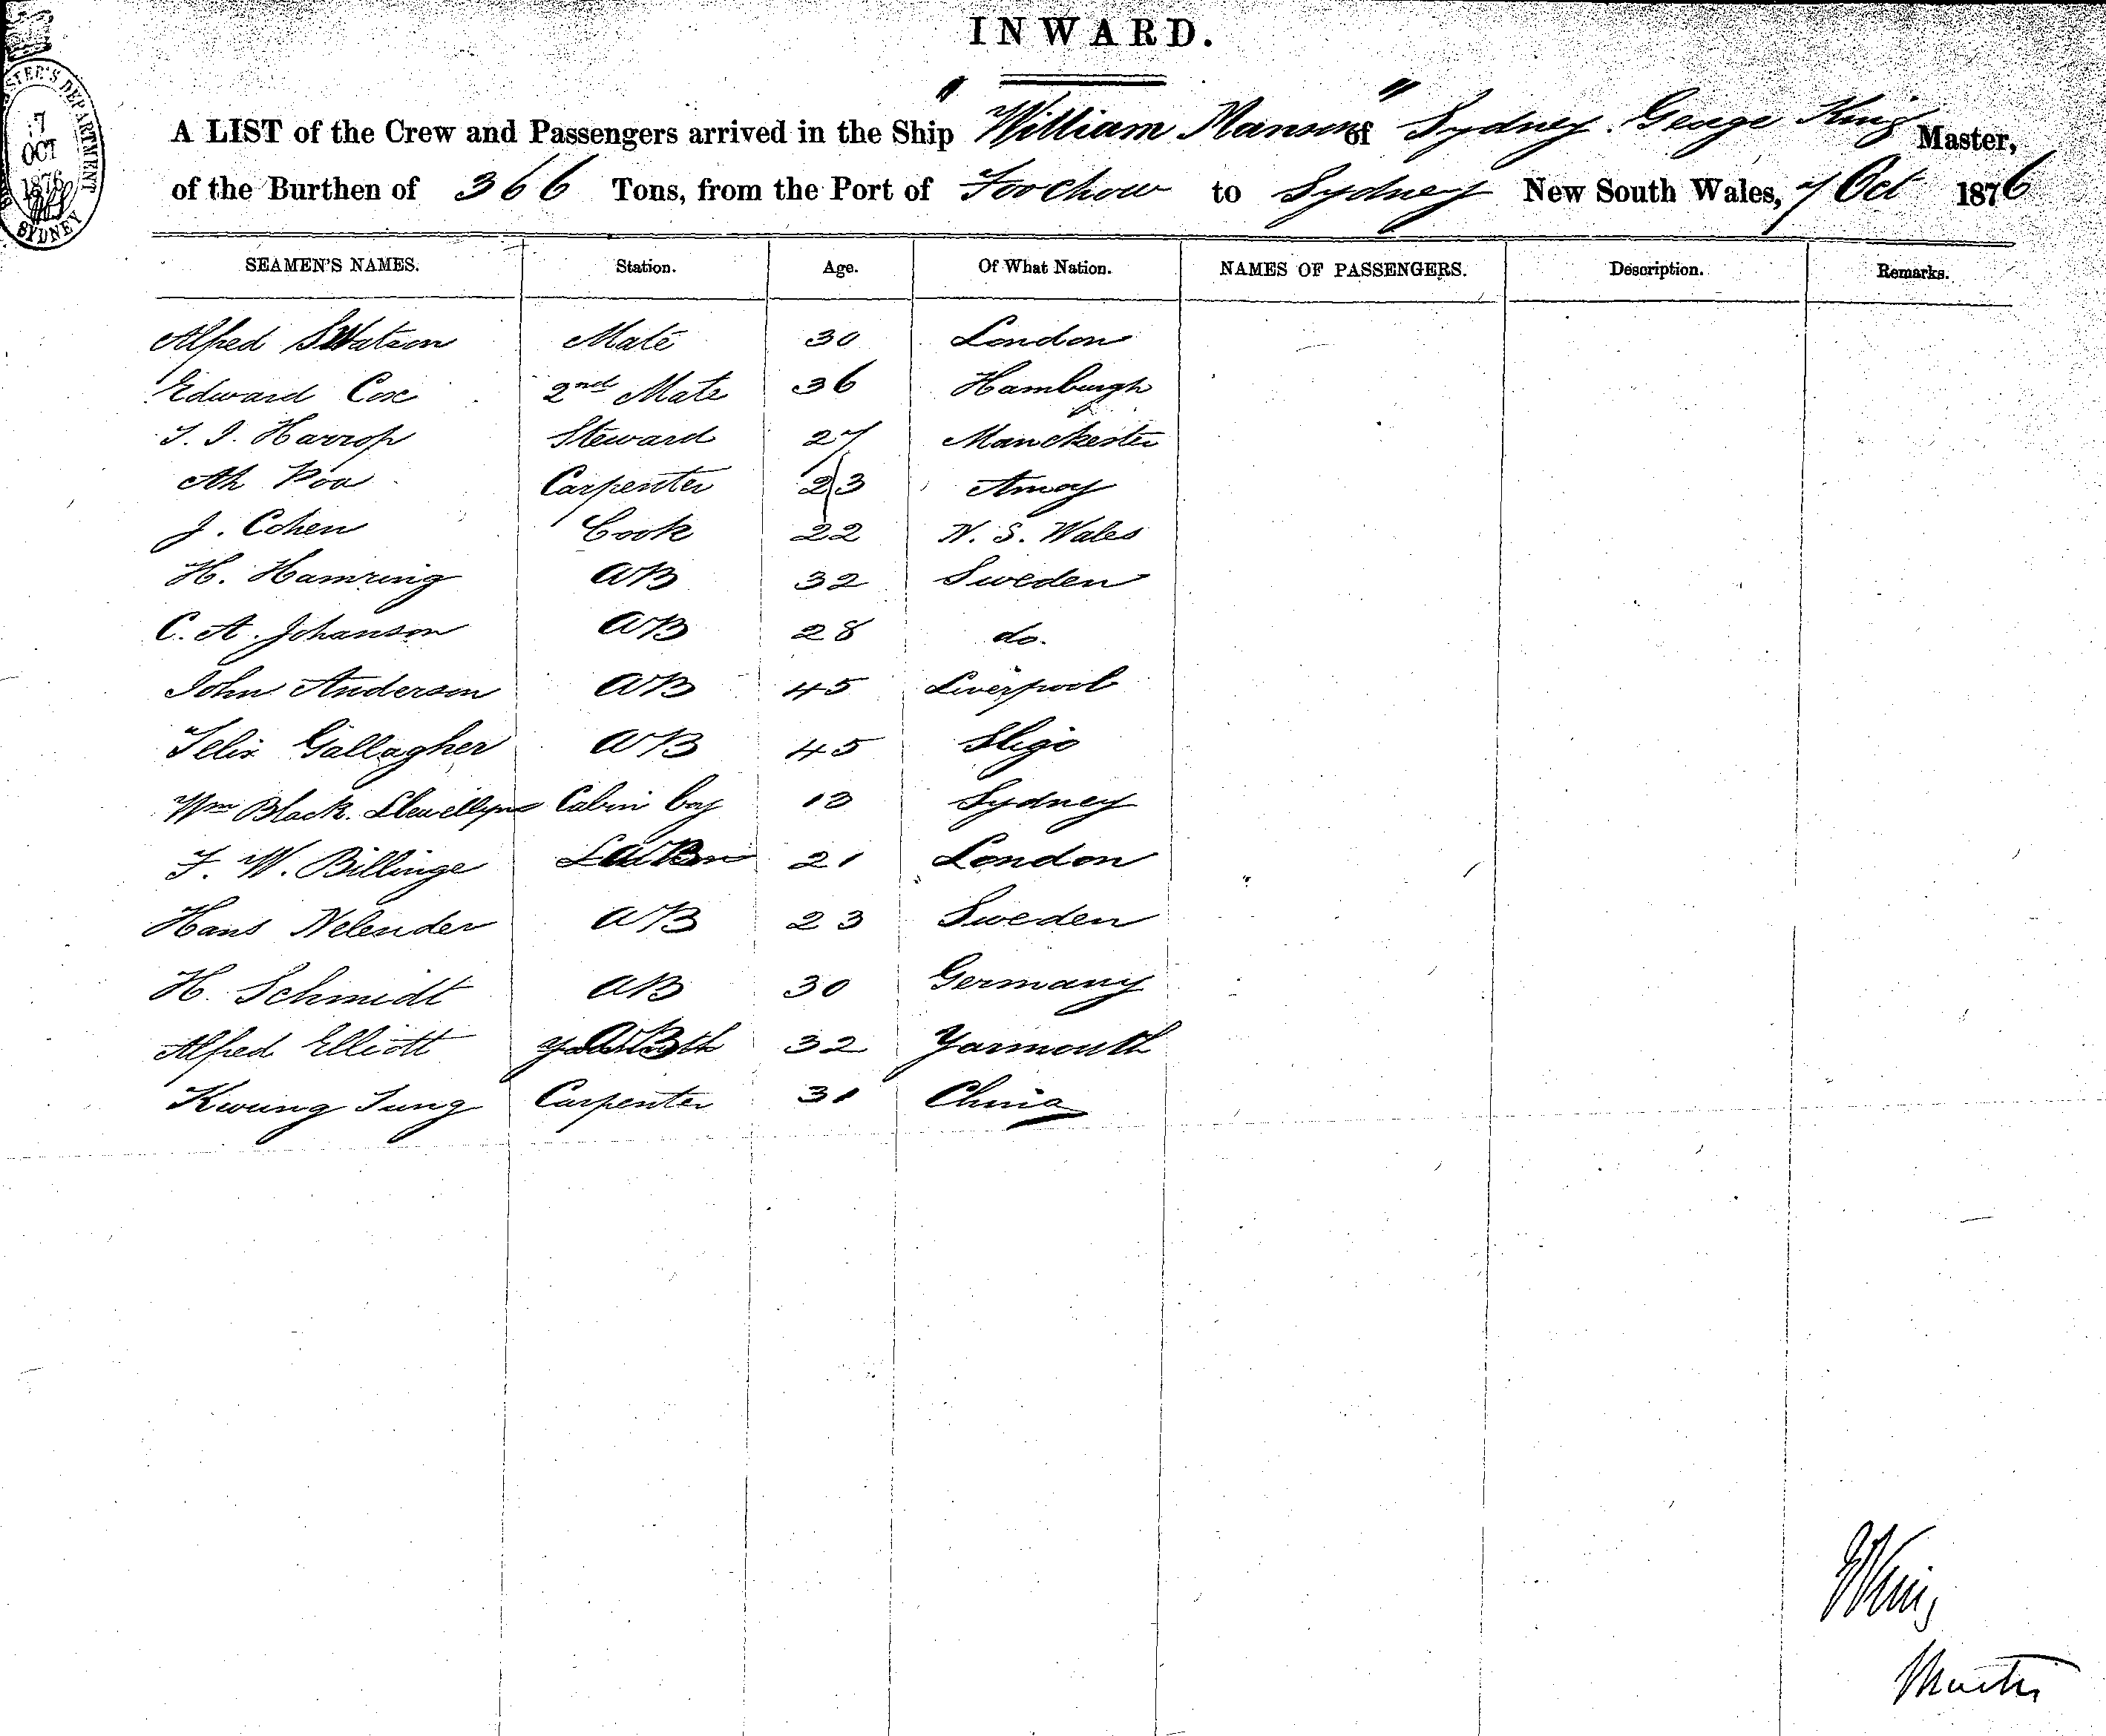 INWARD.
A LIST of the Crew and Passengers arrived in the Ship "William Manson" of Sydney. George King Master,
of the Burthen of 366 Tons, from the Port of Foochow to Sydney New South Wales, 7 Oct 1876
7
OCT
1876
SYDNEY
SEAMEN'S NAMES. Station. Age. Of What Nation. NAMES OF PASSENGERS. Description. Remarks.
Alfred S Watson Mate 30 London
Edward Cox 2nd Mate 36 Hamburgh
T. I. Harrop Steward 27 Manchester
Ah Poa Carpenter 23 Amoy
J. Cohen Cook 22 N. S. Wales
H. Hamring AB 32 Sweden
C. A. Johanson AB 28 do.
John Anderson AB 45 Liverpool
Felix Gallagher AB 45 Sligo
Wm Black. Llewellyn Cabin boy 13 Sydney
F. W. Billinge AB 21 London
Hans Nelender AB 23 Sweden
H. Schmidt AB 30 Germany
Alfred Elliott AB 32 Yarmouth
Kwung Tung Carpenter 31 China
GKing
Master